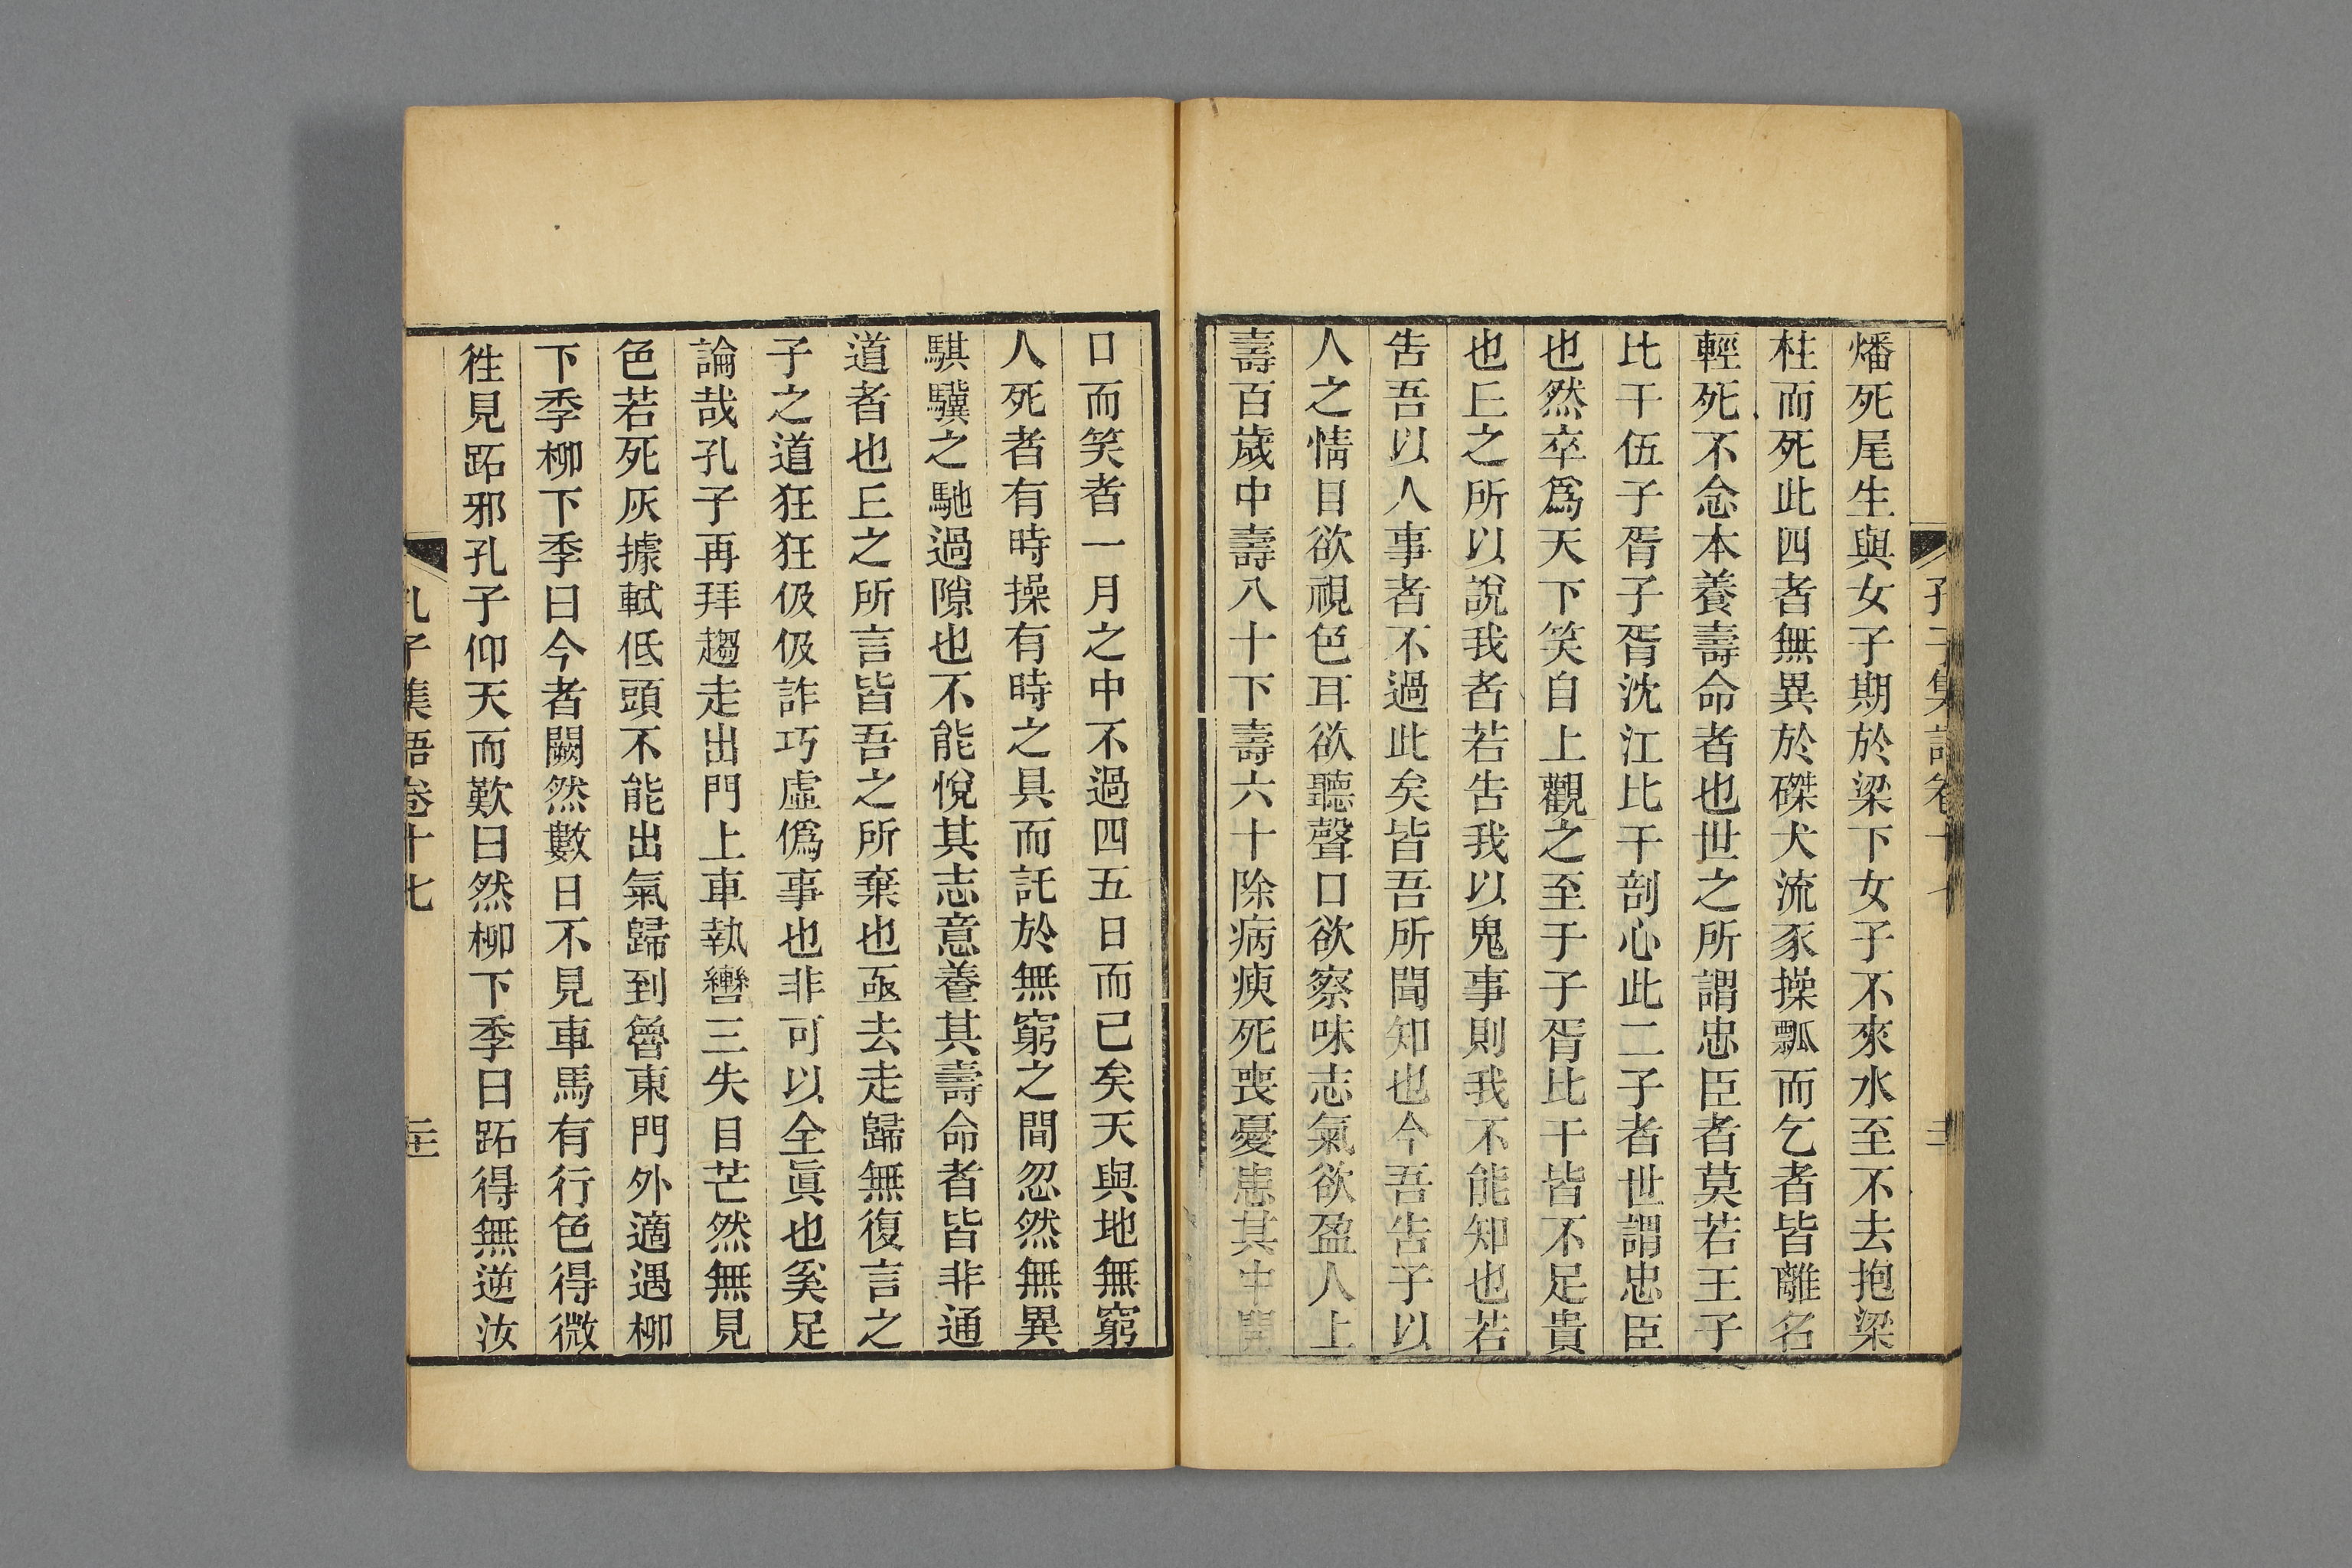 孔子集語卷十七
燔死尾生與女子期於梁下女子不來水至不去抱梁
柱而死此四者無異於磔犬流豕操瓢而乞者皆離名
輕死不念本養壽命者也世之所謂忠臣者莫若王子
比干伍子胥子胥沈江比干剖心此二子者世謂忠臣
也然卒爲天下笑自上觀之至于子胥比干皆不足貴
也丘之所以說我者若告我以鬼事則我不能知也若
告吾以人事者不過此矣皆吾所聞知也今吾告子以
人之情目欲視色耳欲聽聲口欲察味志氣欲盈人上
壽百歲中壽八十下壽六十除病瘐死喪憂患其中開
口而笑者一月之中不過四五日而已矣天與地無窮
人死者有時操有時之具而託於無窮之間忽然無異
騏驥之馳過隙也不能悅其志意養其壽命者皆非通
道者也丘之所言皆吾之所棄也亟去走歸無復言之
子之道狂狂伋伋詐巧虛僞事也非可以全眞也奚足
論哉孔子再拜趨走出門上車執轡三失目芒然無見
色若死灰據軾低頭不能出氣歸到魯東門外適遇柳
下季柳下季曰今者闕然數日不見車馬有行色得微
徃見跖邪孔子仰天而歎曰然柳下季曰跖得無逆汝
孔子集語卷十七